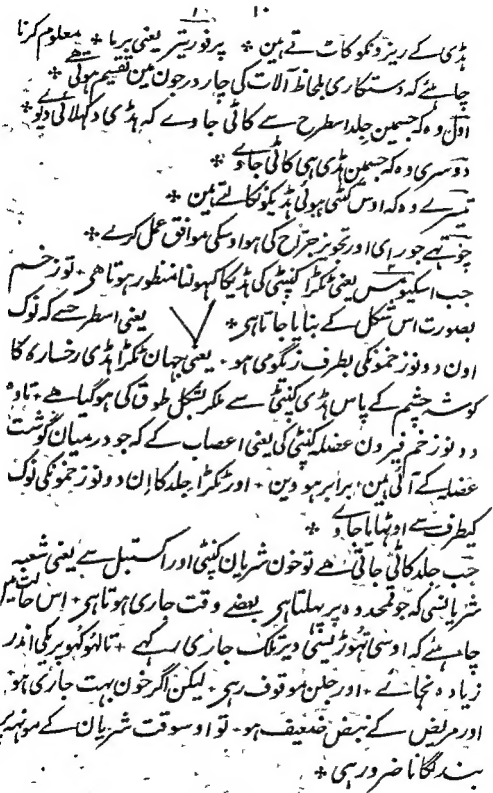 ۱۰
ہڈی کے ریزونکو کاٹتے ہین * پرفوریٹر یعنی برما * معلوم کرنا
چاہئے کہ دستکاری بلحاظ آلات کی چار درجون مین تقسیم ہوتی ہے *
اول وہ کہ جسمین جلد اسطرح سے کاٹی جاوے کہ ہڈی دکہلائی دیوے *
دوسری وہ کہ جسمین ہڈی ہی کاٹی جاوے
تیسرے وہ کہ اوس کٹی ہوئی ہڈیکو نکالتے ہین *
چوتہے جو رای اور تجویز جراح کی ہو اوسکی موافق عمل کرے *
جب اسکیومس یعنی ٹکڑا کنپٹی کی ہڈیکا کہولنا منظور ہوتا ہی * تو زخم
بصورت اس شکل کے بنایا جاتا ہی * V یعنی اسطرحسے کہ نوک
اون دونو زخمونکی بطرف زگومی ہو * یعنی جہان ٹکڑا ہڈی رخسارہ کا
گوشہ چشم کے پاس ہڈی کنپٹی سے ملکر بشکل طوق کی ہو گیا ہے * تا وہ
دونو زخم فیرون عضلہ کنپٹی کی یعنی اعصاب کے کہ جو درمیان گوشت
عضلہ کے آئی ہین * برابر ہووین * اور ٹکڑا جلد کا ان دونو زخمونکی نوک
کیطرف سے اوٹہایا جاوے *
جب جلد کاٹی جاتی ہے تو خون شریان کنپٹی اور اکستبل سے یعنی شعبہ
شریانسی کہ جو قمحدوہ پر پہلتا ہی بعضے وقت جاری ہوتا ہی * اس حالتمین
چاہئے کہ اوسی تہوڑیسی دیر تلک جاری رکہے * تا لہو کہوپریکی اندر
زیادہ نجائے * اور جلن موقوف رہی * لیکن اگر خون بہت جاری ہو
اور مریض کے نبض ضعیف ہو * تو اوسوقت شریان کے مونہہ پر
بند لگانا ضرور ہی *